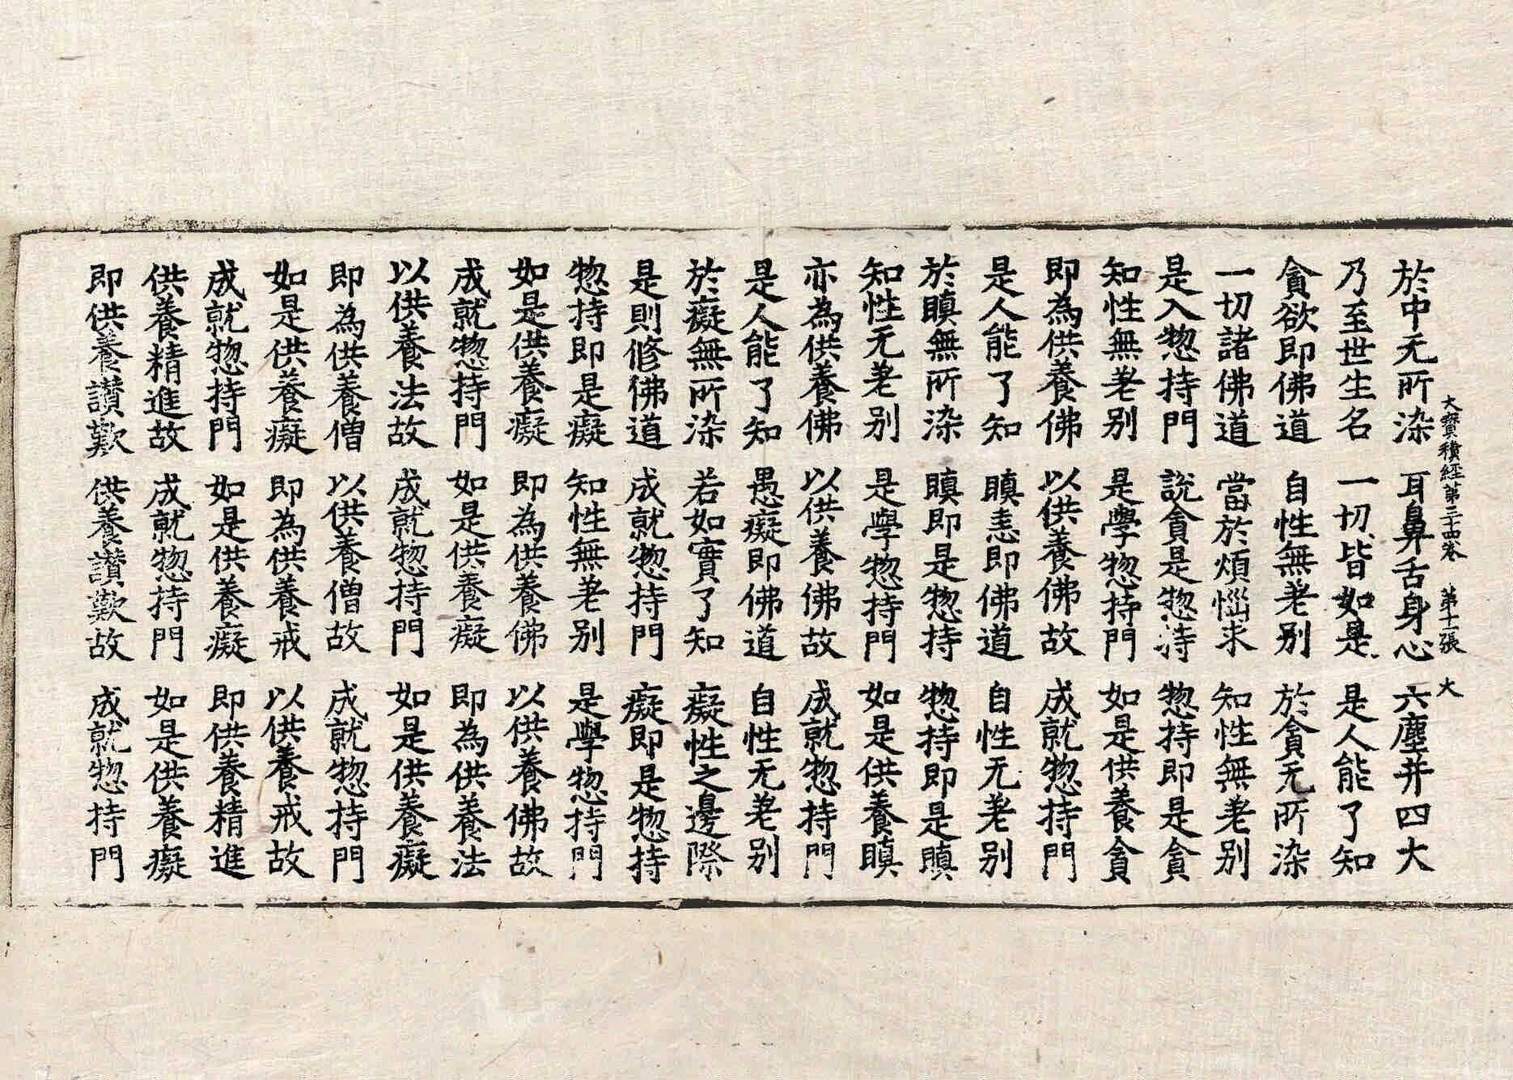 大寶積經第三十四卷 第十一張 大
於中无所染 耳鼻舌身心 六塵并四大
乃至世生名 一切皆如是 是人能了知
貪欲即佛道 自性無差別 於貪无所染
一切諸佛道 當於煩惱求 知性無差別
是入惣持門 說貪是惣持 惣持即是貪
知性無差別 是學惣持門 如是供養貪
即為供養佛 以供養佛故 成就惣持門
是人能了知 瞋恚即佛道 自性无差別
於瞋無所染 瞋即是惣持 惣持即是瞋
知性无差別 是學惣持門 如是供養瞋
亦為供養佛 以供養佛故 成就惣持門
是人能了知 愚癡即佛道 自性无差別
於癡無所染 若如實了知 癡性之邊際
是則修佛道 成就惣持門 癡即是惣持
惣持即是癡 知性無差別 是學惣持門
如是供養癡 即為供養佛 以供養佛故
成就惣持門 如是供養癡 即為供養法
以供養法故 成就惣持門 如是供養癡
即為供養僧 以供養僧故 成就惣持門
如是供養癡 即為供養戒 以供養戒故
成就惣持門 如是供養癡 即供養精進
供養精進故 成就惣持門 如是供養癡
即供養讚歎 供養讚歎故 成就惣持門